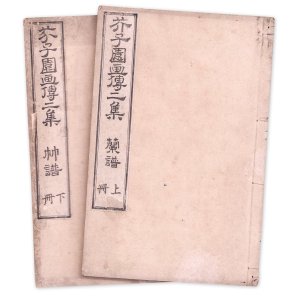 芥子園畫傳二集
蘭譜
上冊
芥子園畫傳二集
竹譜
下冊